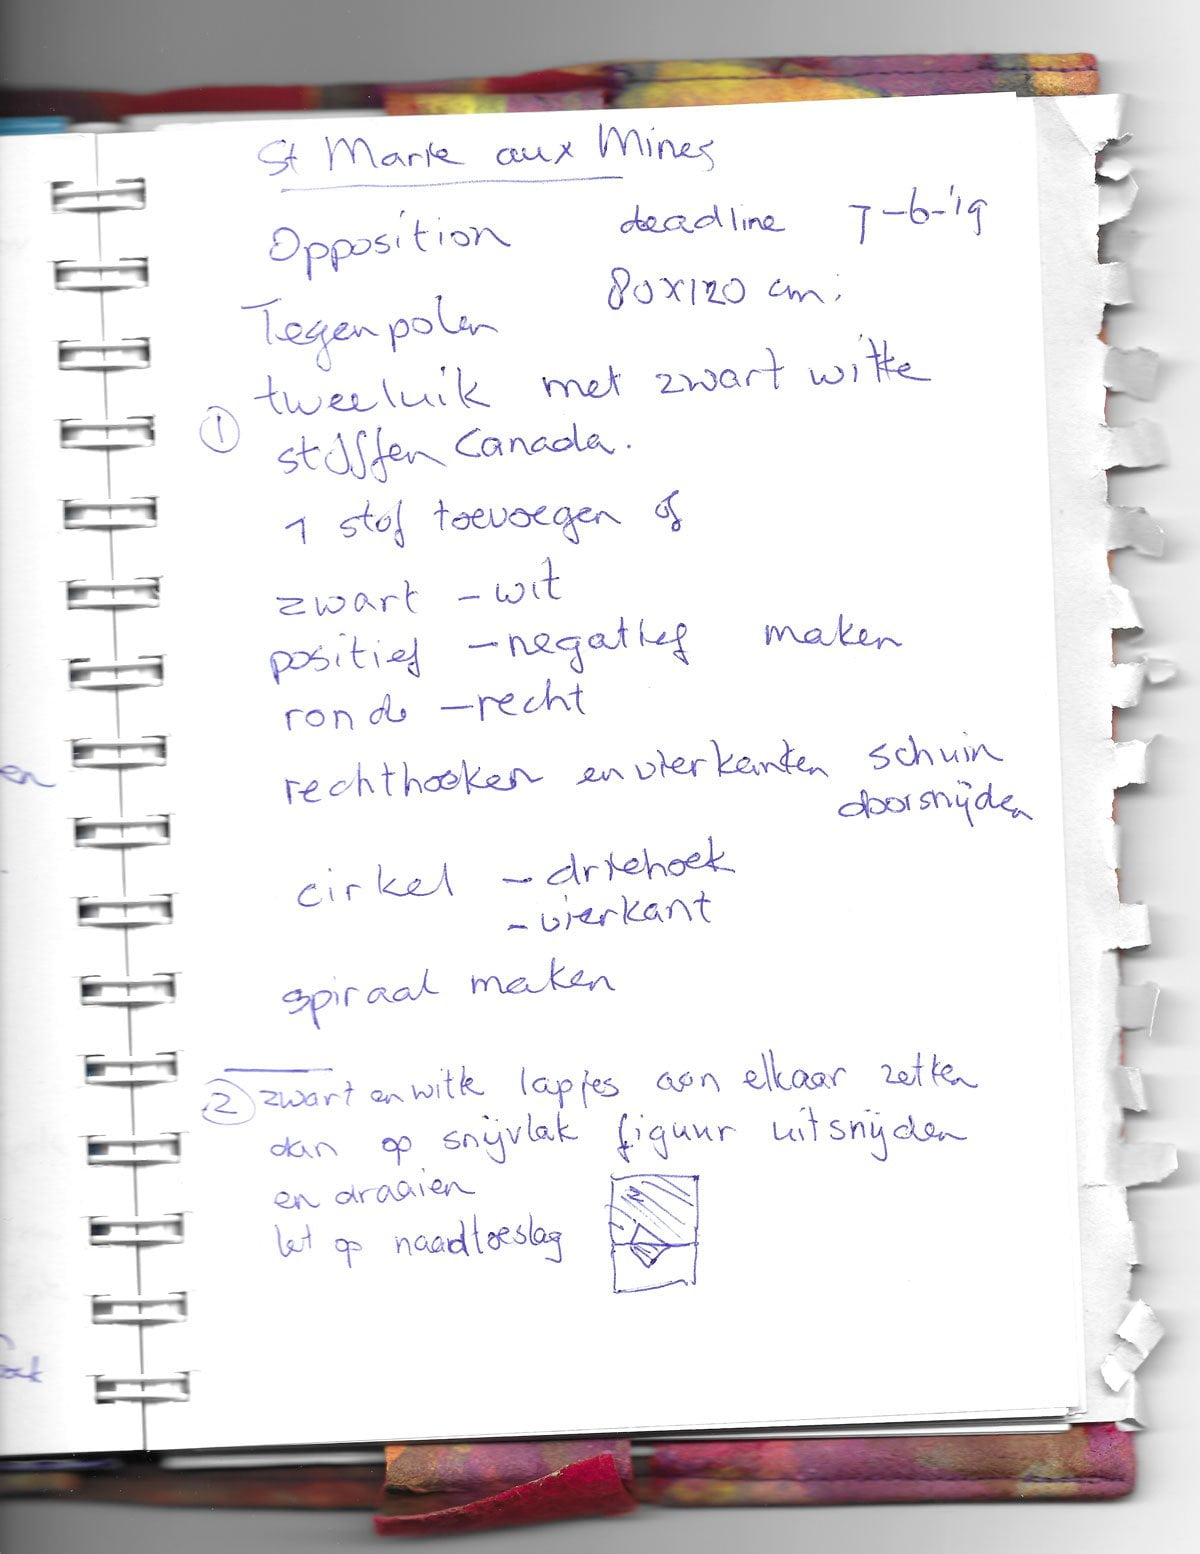 St Marie aux Mines
Opposition deadline 7-6-'19
80x120 cm.
Tegenpolen
tweeluik met zwart witte
① stoffen Canada.
1 stof toevoegen of
zwart - wit
positief - negatief maken
ronde - recht
rechthoeken en vierkanten schuin
doorsnijden
cirkel - driehoek
- vierkant
spiraal maken
② zwart en witte lapjes aan elkaar zetten
dan op snijvlak figuur uitsnijden
en draaien
let op naadtoeslag
en